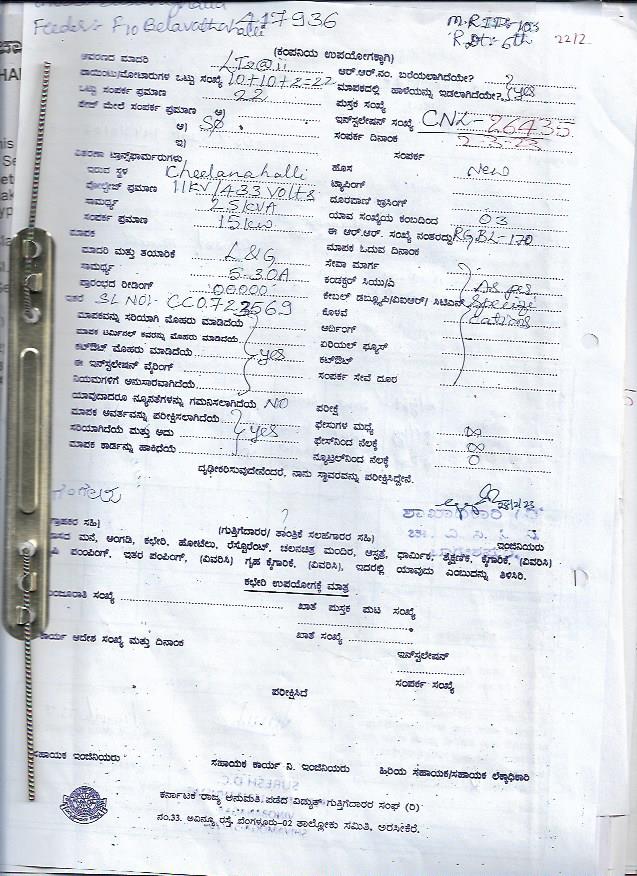 417936
Feeder:- F10 Belavatha halli
M.R
22/2
(ಕಂಪನಿಯ ಉಪಯೋಗಕ್ಕಾಗಿ)
ಆವರಣದ ಮಾದರಿ LT
ಪಾಯಿಂಟು/ಮೋಟಾರುಗಳ ಒಟ್ಟು ಸಂಖ್ಯೆ 10+10+2=22
ಒಟ್ಟು ಸಂಪರ್ಕ ಪ್ರಮಾಣ 22
ಮೇಲೆ ಸಂಪರ್ಕ ಪ್ರಮಾಣ ಅ)
ಆ) Sø
ಇ)
ಆರ್.ಆರ್.ನಂ. ಬರೆಯಲಾಗಿದೆಯೇ?
ಮಾಪಕದಲ್ಲಿ ಹಾಳೆಯನ್ನು ಇಡಲಾಗಿದೆಯೇ? yes
ಪುಸ್ತಕ ಸಂಖ್ಯೆ
ಇನ್‌ಸ್ಟಲೇಷನ್ ಸಂಖ್ಯೆ CNL-26435
ಸಂಪರ್ಕ ದಿನಾಂಕ 2-3-23
ವಿತರಣಾ ಟ್ರಾನ್ಸ್‌ಫಾರ್ಮರುಗಳು
ಇರುವ ಸ್ಥಳ Cheelanahalli
ವೋಲ್ಟೇಜ್ ಪ್ರಮಾಣ 11KV/433 Volts
ಸಾಮರ್ಥ್ಯ 25KVA
ಸಂಪರ್ಕ ಪ್ರಮಾಣ 15KW
ಸಂಪರ್ಕ
ಹೊಸ New
ಟ್ಯಾಪಿಂಗ್
ದೂರವಾಣಿ ಕ್ರಾಸಿಂಗ್
ಯಾವ ಸಂಖ್ಯೆಯ ಕಂಬದಿಂದ 03
ಈ ಆರ್.ಆರ್. ಸಂಖ್ಯೆ ನಂತರದ್ದು RGBL-170
ಮಾಪಕ
ಮಾದರಿ ಮತ್ತು ತಯಾರಿಕೆ L&G
ಸಾಮರ್ಥ್ಯ 5-30A
ಪ್ರಾರಂಭದ ರೀಡಿಂಗ್ 00000
ಇತರೆ SL NO:- CC0723569
ಮಾಪಕ ಓದುವ ದಿನಾಂಕ
ಸೇವಾ ಮಾರ್ಗ
ಕಂಡಕ್ಟರ್ ಸಿಯು/ಎ As per
ಕೇಬಲ್ ಡಬ್ಲ್ಯೂಪಿ/ಐಆರ್/ ಸಿಟಿಎಸ್ Specifi
ಕೊಳವೆ cations
ಅರ್ದಿಂಗ್
ಏರಿಯಲ್ ಫ್ಯೂಸ್
ಕಟ್‌ಔಟ್
ಸಂಪರ್ಕ ಸೇವೆ ದೂರ
ಮಾಪಕವನ್ನು ಸರಿಯಾಗಿ ಮೊಹರು ಮಾಡಿದೆಯೆ
ಮಾಪಕ ಟರ್ಮಿನಲ್ ಕವರನ್ನು ಮೊಹರು ಮಾಡಿದೆಯೆ
ಕಟ್‌ಔಟ್ ಮೊಹರು ಮಾಡಿದೆಯೆ yes
ಈ ಇನ್‌ಸ್ಟಲೇಷನ್ ವೈರಿಂಗ್
ನಿಯಮಗಳಿಗೆ ಅನುಸಾರವಾಗಿದೆಯೆ
ಯಾವುದಾದರೂ ನ್ಯೂನತೆಗಳನ್ನು ಗಮನಿಸಲಾಗಿದೆಯೆ NO
ಮಾಪಕ ಆವರ್ತವನ್ನು ಪರೀಕ್ಷಿಸಲಾಗಿದೆಯೆ
ಸರಿಯಾಗಿದೆಯೆ ಮತ್ತು ಅದು yes
ಮಾಪಕ ಕಾರ್ಡನ್ನು ಹಾಕಿಧೆಯೆ
ಪರೀಕ್ಷೆ
ಫೇಸುಗಳ ಮಧ್ಯೆ ∞
ಫೇಸ್‌ನಿಂದ ನೆಲಕ್ಕೆ ∞
ನ್ಯೂಟ್ರಲ್‌ನಿಂದ ನೆಲಕ್ಕೆ 0
ದೃಢೀಕರಿಸುವುದೇನೆಂದರೆ, ನಾನು ಸ್ಥಾವರವನ್ನು ಪರೀಕ್ಷಿಸಿದ್ದೇನೆ.
ಗ್ರಾಹಕರ ಸಹಿ)
(ಗುತ್ತಿಗೆದಾರರ/ ತಾಂತ್ರಿಕ ಸಲಹೆಗಾರರ ಸಹಿ)
ಇಂಜಿನಿಯರು
ಮನೆ, ಅಂಗಡಿ, ಕಛೇರಿ, ಹೋಟೆಲು, ರೆಸ್ಟೊರೆಂಟ್, ಚಲನಚಿತ್ರ ಮಂದಿರ, ಆಸ್ಪತ್ರೆ, ಧಾರ್ಮಿಕ, ಶೈಕ್ಷಣಿಕ, ಕೈಗಾರಿಕೆ, (ವಿವರಿಸಿ)
ಪಂಪಿಂಗ್, ಇತರ ಪಂಪಿಂಗ್, (ವಿವರಿಸಿ) ಗೃಹ ಕೈಗಾರಿಕೆ, (ವಿವರಿಸಿ), ಇದರಲ್ಲಿ ಯಾವುದು ಎಂಬುದನ್ನು ತಿಳಿಸಿರಿ.
ಕಛೇರಿ ಉಪಯೋಗಕ್ಕೆ ಮಾತ್ರ
ಮಂಜೂರಾತಿ ಸಂಖ್ಯೆ
ಖಾತೆ ಪುಸ್ತಕ ಪುಟ ಸಂಖ್ಯೆ
ಕಾರ್ಯ ಆದೇಶ ಸಂಖ್ಯೆ ಮತ್ತು ದಿನಾಂಕ
ಖಾತೆ ಸಂಖ್ಯೆ
ಇನ್‌ಸ್ಟಲೇಷನ್
ಸಂಪರ್ಕ ಸಂಖ್ಯೆ
ಪರೀಕ್ಷಿಸಿದೆ
ಸಹಾಯಕ ಇಂಜಿನಿಯರು
ಸಹಾಯಕ ಕಾರ್ಯ ನಿ. ಇಂಜಿನಿಯರು
ಹಿರಿಯ ಸಹಾಯಕ/ಸಹಾಯಕ ಲೆಕ್ಕಾಧಿಕಾರಿ
ಕರ್ನಾಟಕ ರಾಜ್ಯ ಅನುಮತಿ ಪಡೆದ ವಿದ್ಯುತ್ ಗುತ್ತಿಗೆದಾರರ ಸಂಘ (ರಿ)
ನಂ.33. ಅವಿನ್ಯೂ ರಸ್ತೆ, ಬೆಂಗಳೂರು-02 ತಾಲ್ಲೋಕು ಸಮಿತಿ, ಅರಸೀಕೆರೆ.